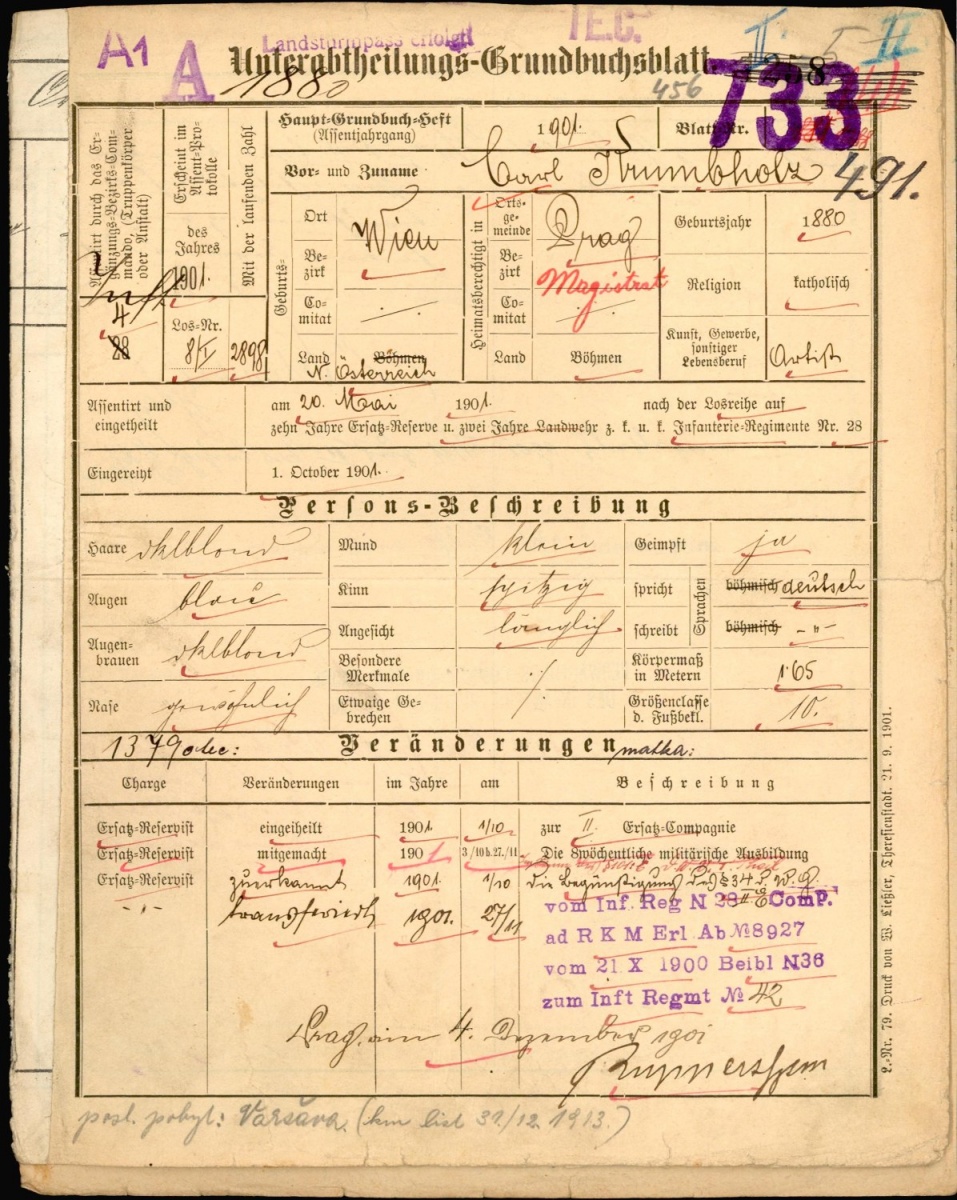 A1
A
Landsturmpass erfolgt
I.E.C.
II 5 II
Unterabtheilungs-Grundbuchsblatt 258
1880
456
733
491.
Assentirt durch das Ergänzungs-Bezirks-Commando, (Truppenkörper oder Anstalt)
4
28
Erscheint im Assent-Protokolle
des Jahres
1901.
Los-Nr.
8/I
Mit der laufenden Zahl
2898
Haupt-Grundbuch-Heft
(Assentjahrgang)
1901.
Blatt-Nr.
Vor- und Zuname
Carl Krumbholz
Geburts-
Ort
Wien
Bezirk
Comitat
Land
Böhmen
N. Österreich
Heimatsberechtigt in
Ortsgemeinde
Prag
Bezirk
Magistrat
Comitat
Land
Böhmen
Geburtsjahr
1880
Religion
katholisch
Kunst, Gewerbe, sonstiger Lebensberuf
Artist
Assentirt und eingetheilt
am 20. Mai 1901. nach der Losreihe auf
zehn Jahre Ersatz-Reserve u. zwei Jahre Landwehr z. k. u. k. Infanterie-Regimente Nr. 28
Eingereiht
1. October 1901.
Persons-Beschreibung
Haare dklblond
Mund klein
Geimpft ja
Augen blau
Kinn spitzig
spricht
Sprachen
böhmisch deutsch
Angesicht länglich
schreibt
böhmisch -"-
Augenbrauen dklblond
Besondere Merkmale ./.
Körpermaß in Metern 1·65
Nase gewöhnlich
Etwaige Gebrechen
Größenclasse d. Fußbekl. 10.
1379 otec: Veränderungen matka:
Charge Veränderungen im Jahre am Beschreibung
Ersatz-Reservist eingetheilt 1901. 1/10 zur II. Ersatz-Compagnie
Ersatz-Reservist mitgemacht 1901 3/10 b. 27./11 Die 8wöchentliche militärische Ausbildung
Ersatz-Reservist zuerkannt 1901 1/10 die Begünstigung des § 34 d. W. G.
-"- transferiert 1901. 27/11
vom Inf. Reg N 28 II E Comp.
ad R K M Erl Ab № 8927
vom 21 X 1900 Beibl N 36
zum Inft Regmt № 42
Prag, am 4. Dezember 1901
post. pobyt: Varšava. (km list 31/12. 1913.)
L.-Nr. 79. Druck von W. Ließler, Theresienstadt. 21. 9. 1901.